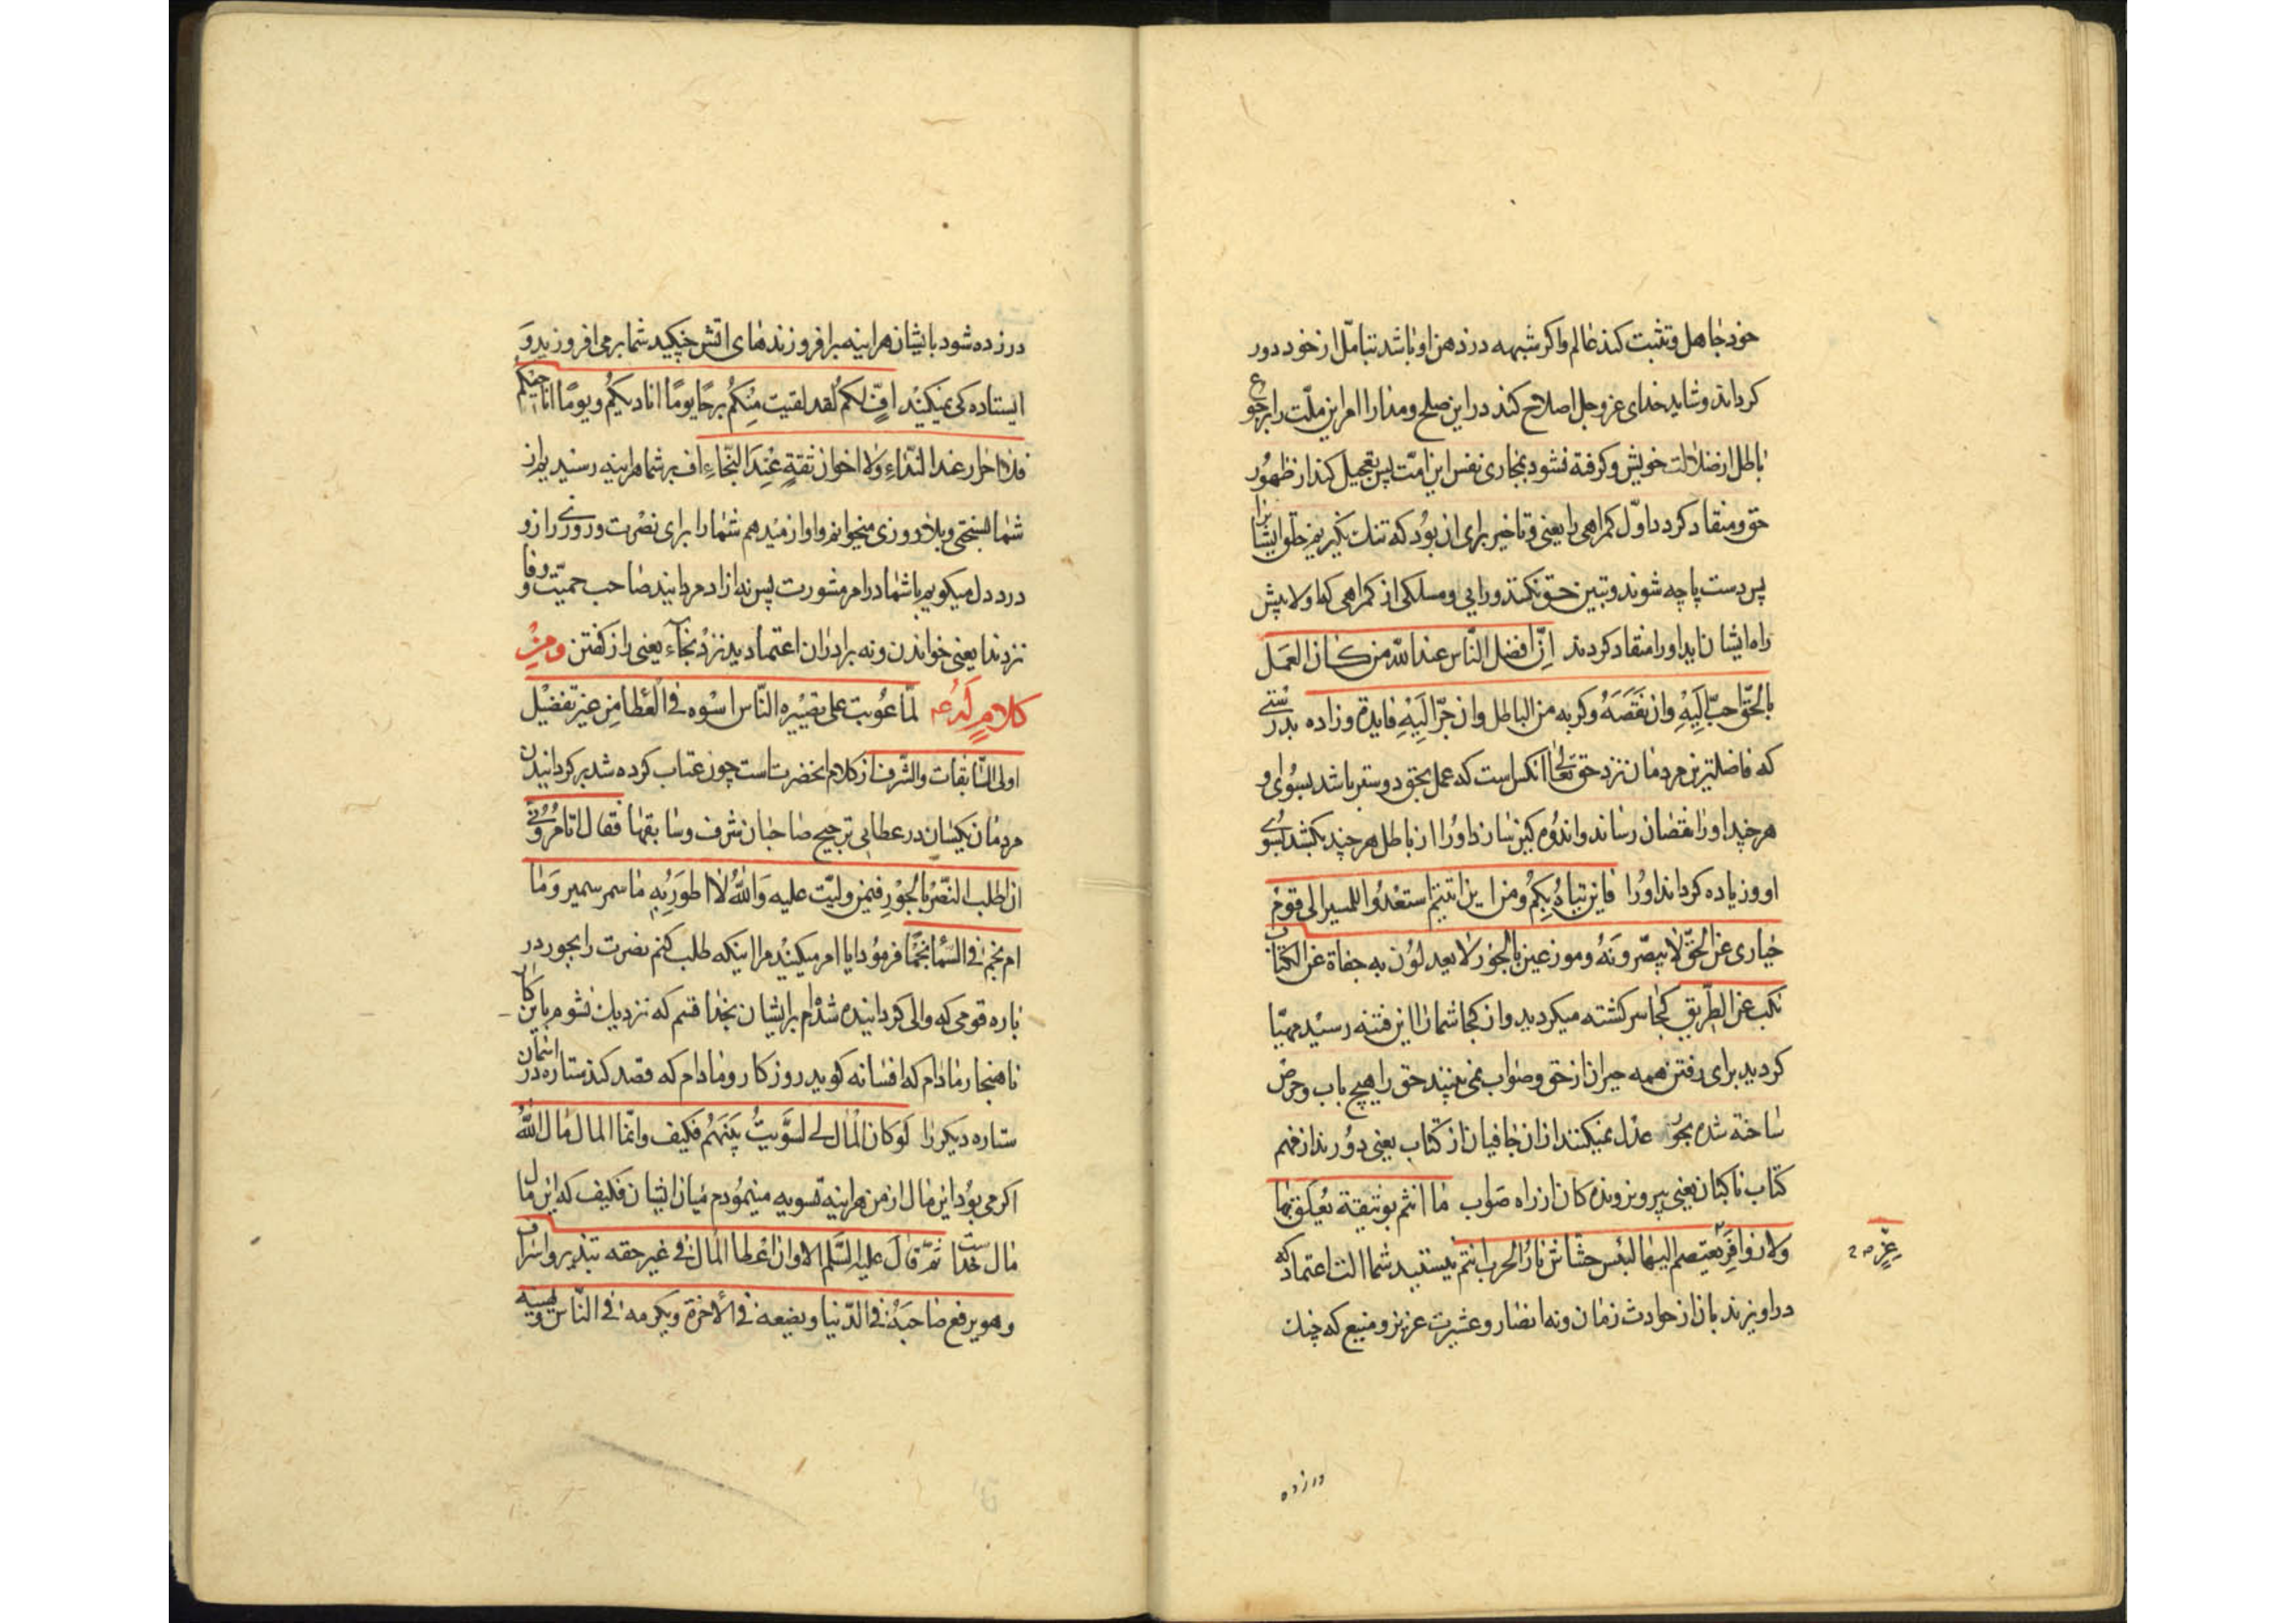 خود جاهل و تثبت کند عالم و اکر شبهه در ذهن او باشد بتامّل از خود دور
کرداند و شاید خدای عز و جل اصلاح کند در این صلح و مدارا امر این ملّت را برجوع
باطل از ضلالت خویش و کرفته نشود بمجاری نفس این امّت پس تعجیل کند از ظهُور
حق و منقاد کردد باوّل کمراهی را یعنی و تاخیر برای ان بوُد که تنک نکیریم خلق ایشانرا
پس دست پاچه شوند و تبین حق نکنند و رایی و مسلکی از کمراهی که اولا پیش
راه ایشان نابد او را منقاد کردند اِنّ افضل النّاس عند اللّه من کان العمَل
بالحَقّ احبّ اِلَیْهِ وان نَقَصَهُ وکربه من الباطل وان جرّ اِلَیْهِ فایدة وزاده بدرستی
که فاضلترین مردمان نزد حق تعالی انکس است که عمل بحق دوستر باشد بسوُی او
هر چند او را نقصان رساند و اندوُه کین سازد اورُا از باطل هر چند بکشد بسُوی
او و زیاده کرداند اورُا فاین تیاهُ بِکمُ ومن این اتیتم استعدُّوا للمسیر الی قومْ
حیاری عن الحقّ لا یبصّرونَهُ وموزعین بالجوُر لا یعدلوُن به جفاة عن الکتاب
نکب عن الطّریق کجا سرکشته میکردید و از کجا شمارا این فتنه رسیْد مهیّا
کردید برای رفتن همه حیران از حق و صواب نمی بینند حق را هیچ باب و حرض
ساخته شده بجوُر عدْل نمیکنند از ان جافیان از کتاب یعنی دوُرند از فهم
کتاب ناکبان یعنی بیرون رونده کان از راه صَواب ما انتم بوثیقة یُعلَق بها
ولا زوافِرَ یعتصم الیها لبئس حشّاش نارُ الحرب انتم نیستید شما الت اعتماد که
عِزٍّ صح
در اویزند بان از حوادث زمان و نه انصار و عشیرت عزیز و منیع که چنک
در زده
در زده شود بایشان هراینه مبرافروزندهای اتش جنکید شما برمی افروزید وَ
ایستاده کی نمیکنیْد افٍّ لکُم لقد لقیت مِنکُم برحًا یومًا انادیکُم و یومًا اناجیکم
فلا احرار عند النّداءِ ولا اخوان ثقةٍ عِنْدَ النّجّاءِ اف بر شما هراینه رسیدیم از
شما بسختی و بلا روزی میخوانم و اواز میْدهم شمارا برای نصْرت و روزی راز و
درد دل میکویم باشما در امر مشورت پس نه ازاد مردانید صاحب حمیّت و وفا
نزد ندا یعنی خواندن و نه برادران اعتمادید نزدْ نجاء یعنی راز کفتن ومِنْ
کلامٍ لَهُ ع لمّا عُوتب علی تصْییره النّاس اسْوه فی العْطا مِن غیر تفضیْل
اولی السّابقات والشّرف از کلام انحضرت است چون عتاب کرده شد بر کردانیدن
مردمان یکسان در عطا بی ترجیح صاحبان شرف و سابقها فقال اتامُرُونّی
ان اطلب النّصْر بالجوْرِ فیمن ولّیت علیه وَاللّٰهُ لا اطوُرَ بُهِ ما سمر سمیر وَما
ام نجْم فی السّماءِ نجْمًا فرموُد ایا امر میکنیْد مرا اینکه طلب کنم نصرت را بجور در
باره قومی که والی کردانیده شدْه ام بر ایشان بخدا قسم که نزدیک نشوم باین کار
ناهنجار مادام که افسانه کوید روز کار و مادام که قصد کند ستاره در اسمان
ستاره دیکر را لَوکان الْمال لی لسَوّیتُ بَیْنَهُم فکیف وانّما المال مال اللّٰهُ
اکر می بوُد این مال از من هراینه تسویه مینموُدم میْان ایشان فکیف که این مال
مال خداست ثمّ قالَ علیه السّلم الا وان اعْطا المال فی غیر حقه تبذیر واسراف
وهو یرفع صاحبَهُ فی الدّنیا ویضعه فی الأخرة ویکرمه فی النّاس ویهینه